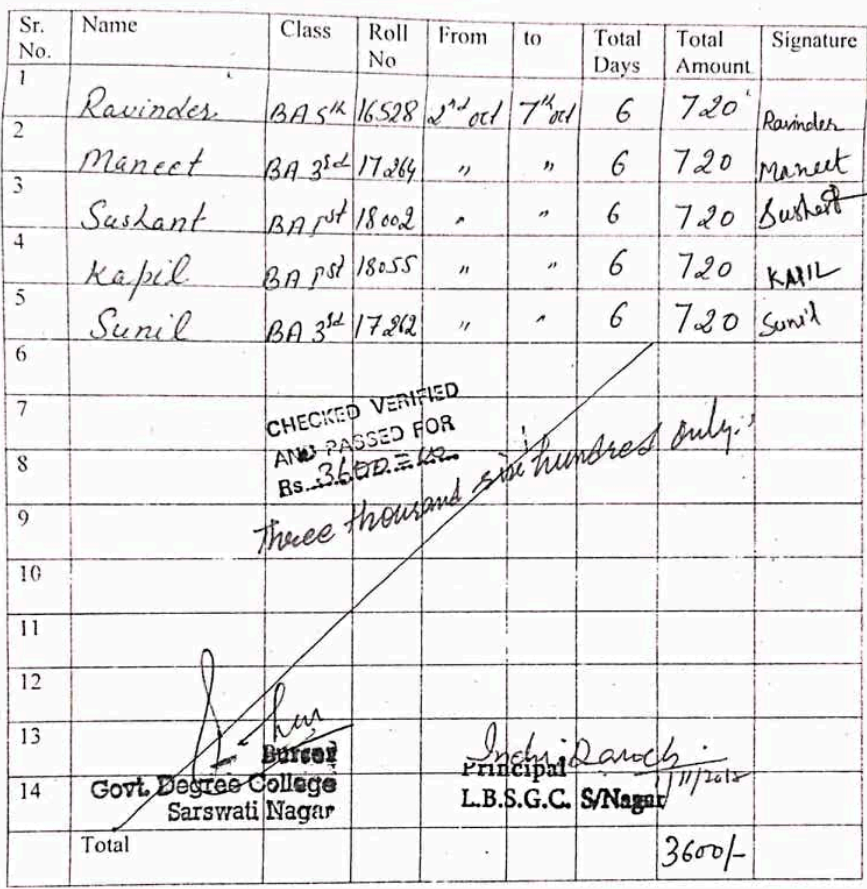 Sr. No. Name Class Roll No From to Total Days Total Amount Signature
1 Ravinder BA 5th 16528 2nd oct 7th oct 6 720 Ravinder
2 Maneet BA 3rd 17264 " " 6 720 Maneet
3 Sushant BA 1st 18002 " " 6 720 Sushant
4 Kapil BA 1st 18055 " " 6 720 KAPIL
5 Sunil BA 3rd 17262 " " 6 720 Sunil
6
7
CHECKED VERIFIED
AND PASSED FOR
8
Rs. 3600
Three thousand six hundred only.
9
10
11
12
13
Bursar
Principal
14
Govt. Degree College
Sarswati Nagar
L.B.S.G.C. S/Nagar
Total 3600/-